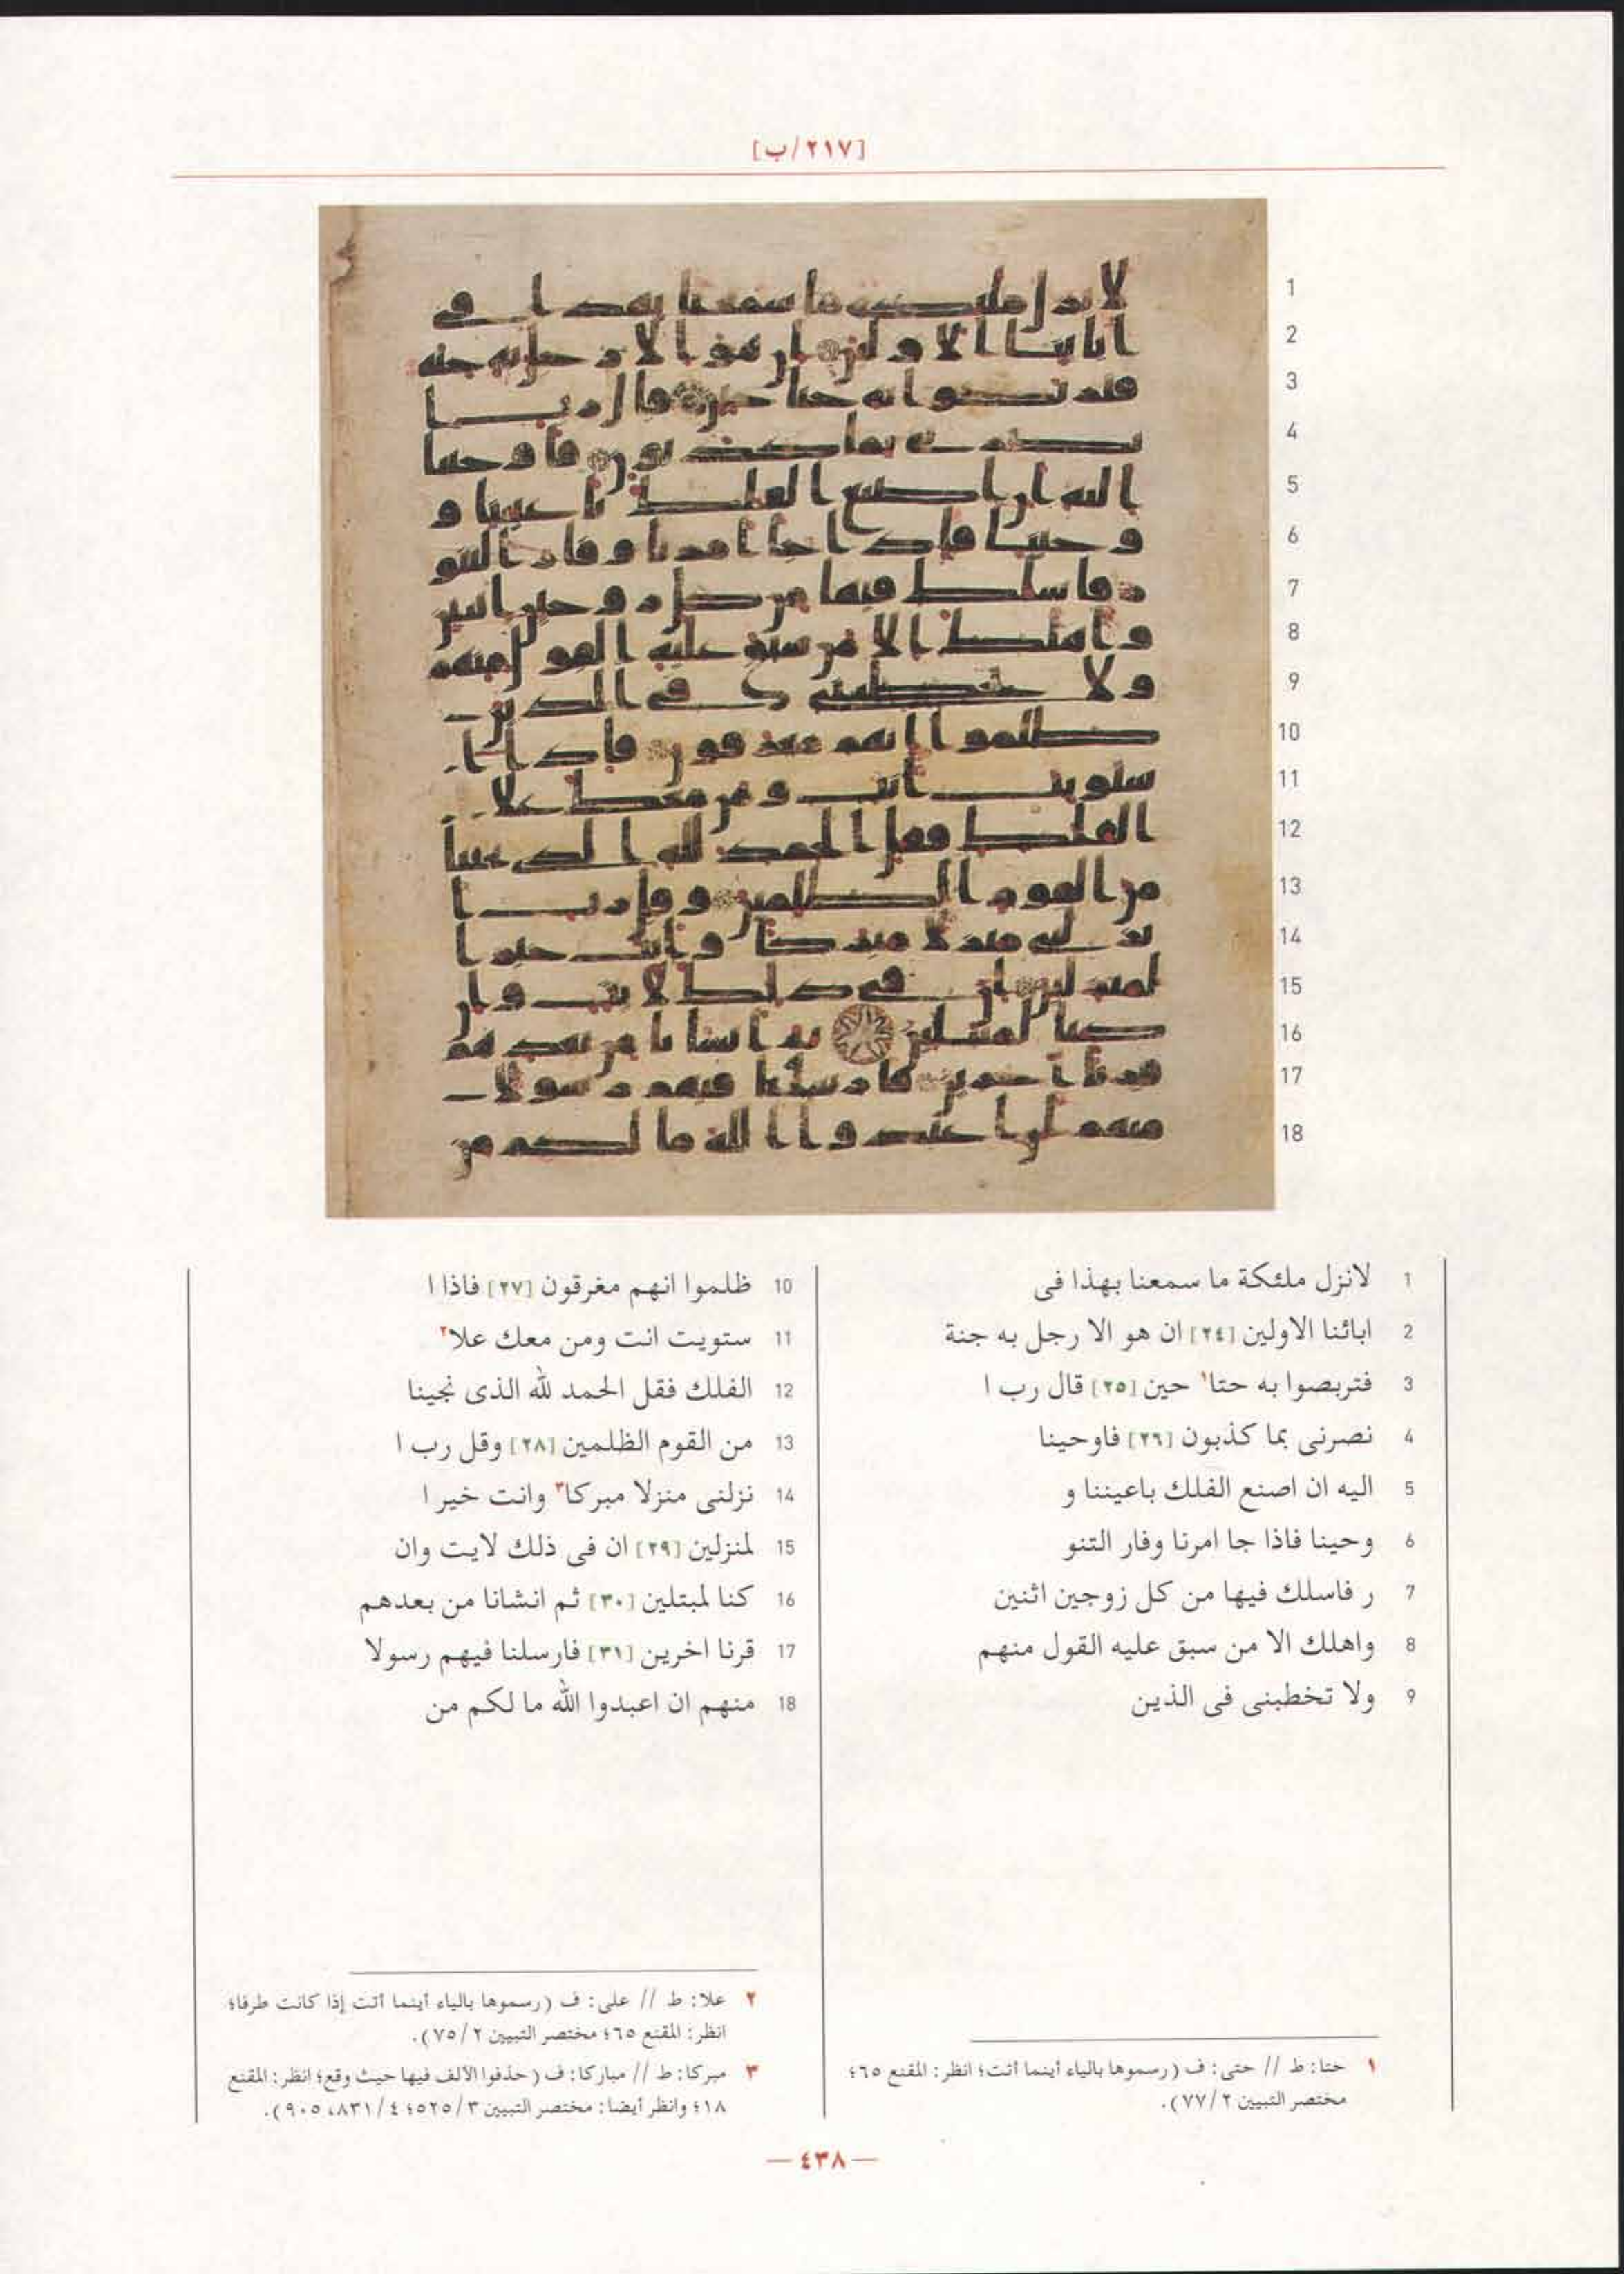 [٢١٧/ب]
1 لانزل ملئكة ما سمعنا بهذا فى
2 ابائنا الاولين [٢٤] ان هو الا رجل به جنة
3 فتربصوا به حتا١ حين [٢٥] قال رب ا
4 نصرنى بما كذبون [٢٦] فاوحينا
5 اليه ان اصنع الفلك باعيننا و
6 وحينا فاذا جا امرنا وفار التنو
7 ر فاسلك فيها من كل زوجين اثنين
8 واهلك الا من سبق عليه القول منهم
9 ولا تخطبنى فى الذين
10 ظلموا انهم مغرقون [٢٧] فاذا ا
11 ستويت انت ومن معك علا٢
12 الفلك فقل الحمد لله الذى نجينا
13 من القوم الظلمين [٢٨] وقل رب ا
14 نزلنى منزلا مبركا٣ وانت خير ا
15 لمنزلين [٢٩] ان فى ذلك لايت وان
16 كنا لمبتلين [٣٠] ثم انشانا من بعدهم
17 قرنا اخرين [٣١] فارسلنا فيهم رسولا
18 منهم ان اعبدوا الله ما لكم من
١ حتا: ط // حتى: ف (رسموها بالياء أينما أتت؛ انظر: المقنع ٦٥؛
مختصر التبيين ٧٧/٢).
٢ علا: ط // على: ف (رسموها بالياء أينما أتت إذا كانت طرفا؛
انظر: المقنع ٦٥؛ مختصر التبيين ٧٥/٢).
٣ مبركا: ط // مباركا: ف (حذفوا الألف فيها حيث وقع؛ انظر: المقنع
١٨؛ وانظر أيضا: مختصر التبيين ٥٢٥/٣؛ ٨٣١/٤، ٩٠٥).
— ٤٣٨ —